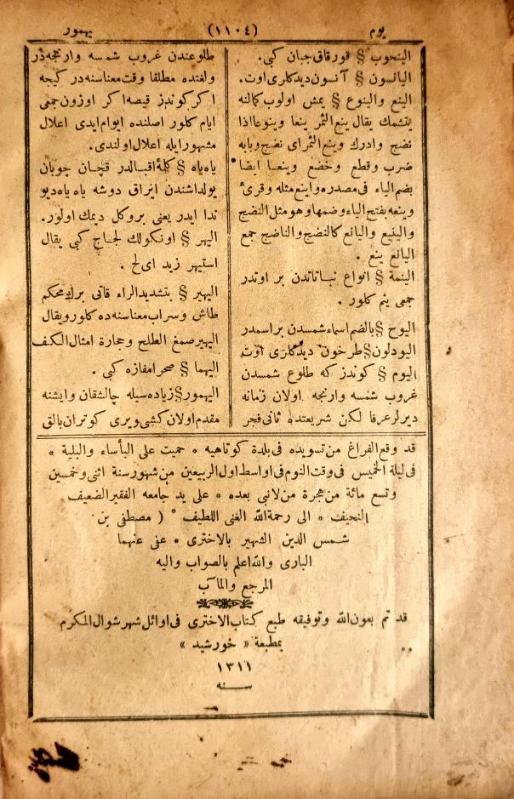 يوم (١١٠٤) يهمور
الينحوب § قورقاق جبان كبى.
اليانسون § آنسون ديدكلرى اوت.
الينع والينوع § يمش اولوب كمالنه
يتشمك يقال ينع الثمر ينعا وينوعا اذا
نضج وادرك وينع الثمر اى نضج وبابه
ضرب وقطع وخضع وينعا ايضا
بضم الياء فى مصدره واينع مثله وقرئ
وينعه بفتح الياء وضمها وهو مثل النضج
والينيع واليانع كالنضيج والناضج جمع
اليانع ينع .
الينمة § انواع نباتاتدن بر اوتدر
جمعى ينم كلور .
اليوح § بالضم اسماء شمسدن بر اسمدر
اليودلون § طرخون ديدكلرى اوت
اليوم § كوندز كه طلوع شمسدن
غروب شمسه وارنجه اولان زمانه
ديرلر عرفا لكن شريعتده ثانى فجر
طلوعندن غروب شمسه وارنجه در
ولغتده مطلقا وقت معناسنه در كيجه
اكر كوندز قيصه اكر اوزون جمعى
ايام كلور اصلنده ايوام ايدى اعلال
مشهور ايله اعلال اولندى.
ياه ياه § كلۀ اقبالدر قچان چوبان
يولداشندن ايراق دوشه ياه ياه ديو
ندا ايدر يعنى بروكل ديمك اولور.
اليهر § اونكولك لجاج كبى يقال
استيهر زيد اى لج .
اليهير § بتشديد الراء قاتى برك محكم
طاش وسراب معناسنه ده كلور ويقال
اليهير صمغ الطلح وحجارة امثال الكف
اليهما § صحرا مفازه كبى .
اليهمور § زياده سيله چالشقان وايشنه
مقدم اولان كشى ويرى كوتران بالق
قد وقع الفراغ من تسويده فى بلدة كوتاهيه * حميت على البأساء والبلية *
فى ليلة الخميس فى وقت النوم فى اواسط اول الربيعين من شهور سنة اثنى وخمسين
وتسع مائة من هجرة من لانبى بعده * على يد جامعه الفقير الضعيف
النحيف * الى رحمة الله الغنى اللطيف * ( مصطفى بن
شمس الدين الشهير بالاخترى * عفى عنهما
البارى والله اعلم بالصواب واليه
المرجع والمآب
قد تم بعون الله وتوفيقه طبع كتاب الاخترى فى اوائل شهر شوال المكرم
بمطبعة « خورشيد »
١٣١١
سنه